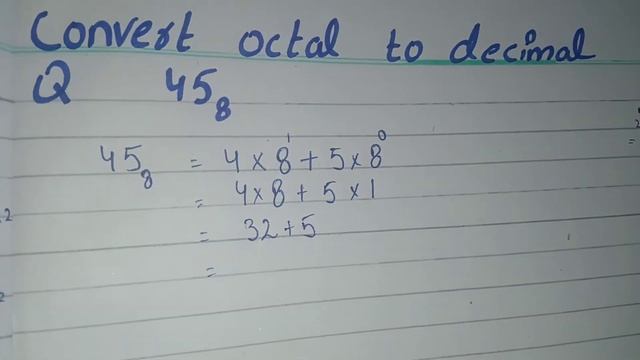 Convert octal to decimal
Q 45₈
45₈ = 4×8¹+5×8⁰
= 4×8+5×1
= 32+5
=